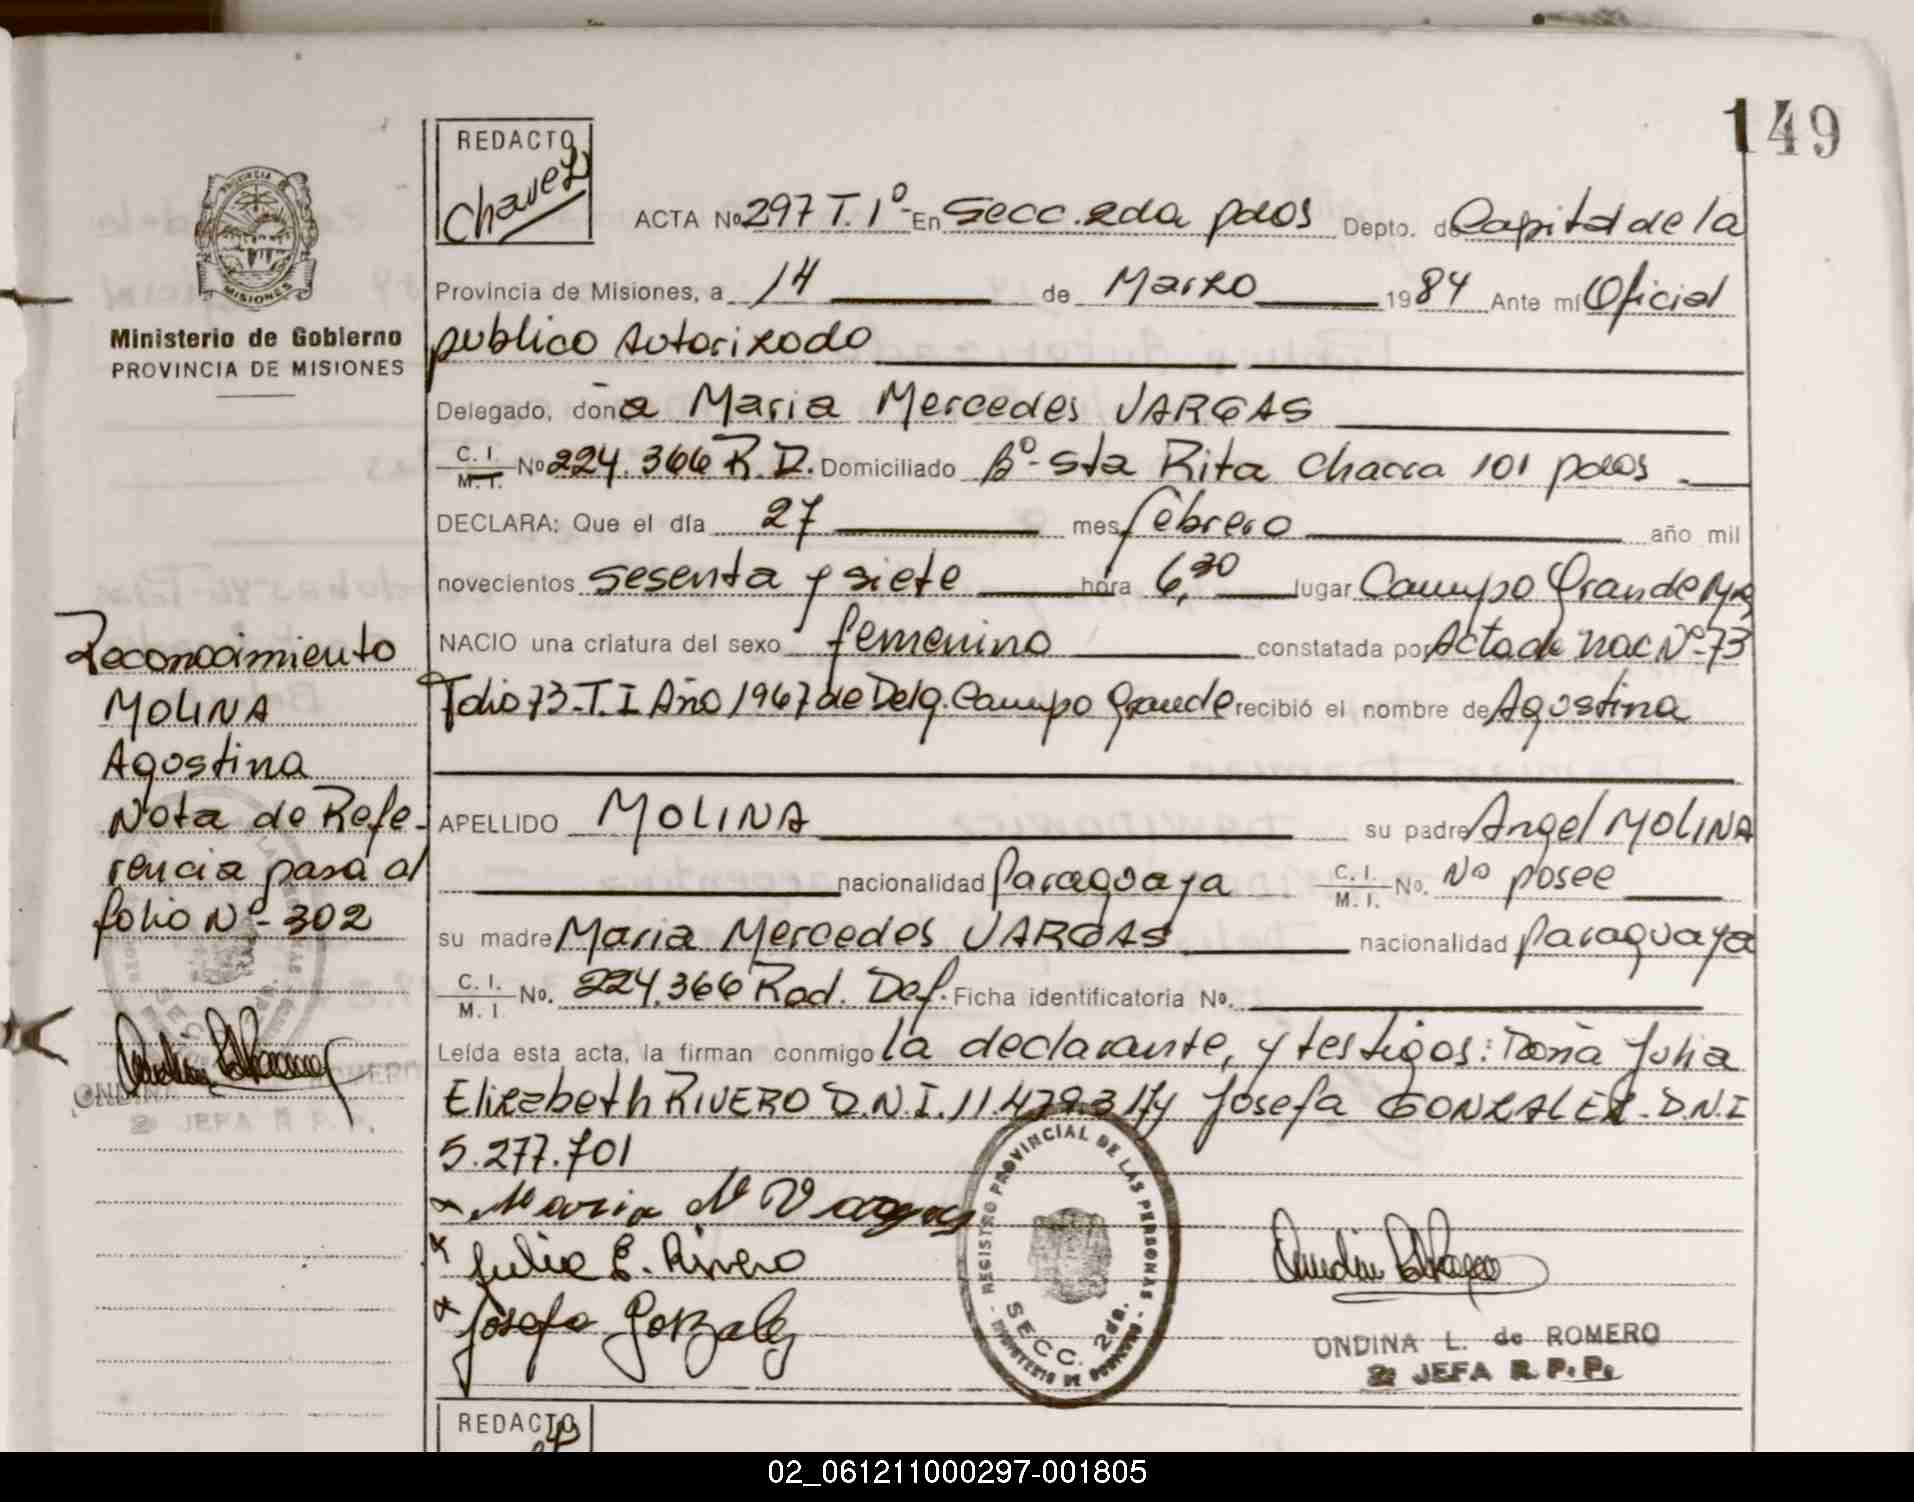 149
REDACTO
Chavez
PROVINCIA DE
MISIONES
Ministerio de Gobierno
PROVINCIA DE MISIONES
ACTA Nº 297 T. 1º- En Secc. 2da pdas Depto. de Capital de la
Provincia de Misiones, a 14 de Marzo 1984 Ante mí Oficial
publico Autorizado
Delegado, doña Maria Mercedes VARGAS
C. I. M. I. Nº 224.366 R.D. Domiciliado Bº- Sta Rita Chacra 101 pdas
DECLARA: Que el día 27 mes febrero año mil
novecientos sesenta y siete hora 6,30 lugar Campo Grande Mnes
NACIO una criatura del sexo femenino constatada por Acta de nac Nº-73
Folio 73-T.I Año 1967 de Delg. Campo Grande recibió el nombre de Agostina
APELLIDO MOLINA su padre Angel MOLINA
nacionalidad Paraguaya C. I. M. I. No. No posee
su madre Maria Mercedes VARGAS nacionalidad paraguaya
C. I. M. I. No. 224.366 Rad. Def. Ficha identificatoria No.
Leída esta acta, la firman conmigo la declarante, y testigos: Doña Julia
Elizabeth RIVERO D.N.I. 11.479.314 y Josefa GONZALEZ. D.N.I
5.277.701
Maria M Vargas
Julia E. Rivero
Josefa Gonzalez
REGISTRO PROVINCIAL DE LAS PERSONAS
SECC. 2da.
MINISTERIO DE GOBIERNO
ONDINA L. de ROMERO
2a JEFA R. P. P.
Reconocimiento
MOLINA
Agostina
Nota de Refe-
rencia pasa al
folio Nº- 302
ONDINA ROMERO
2a JEFA R P. P.
REDACTO
02_061211000297-001805